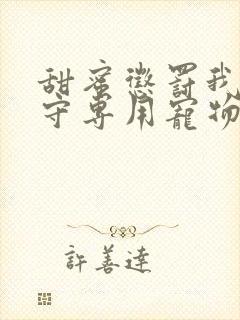 甜蜜懲罰我
守專用寵物
許善達